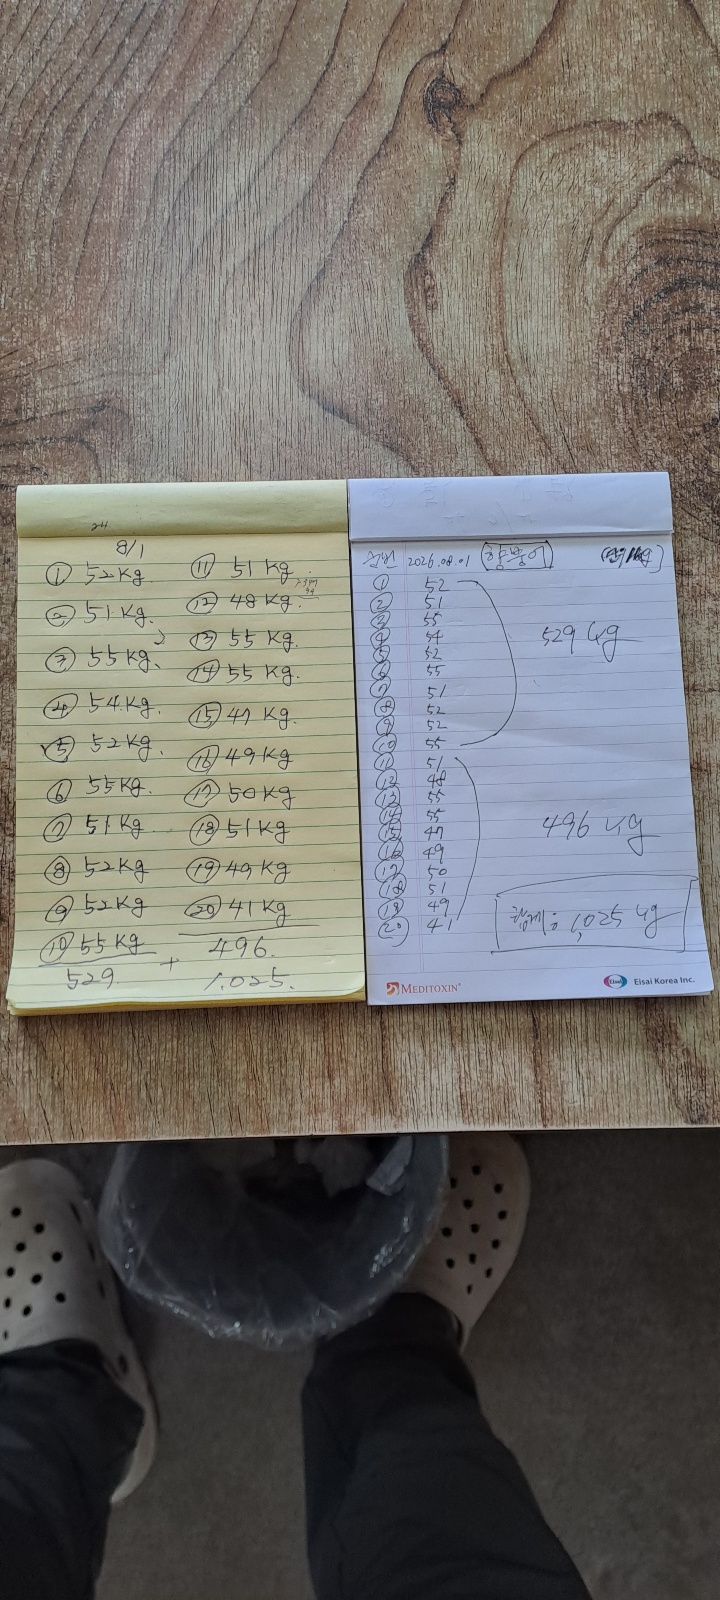 24
8/1
① 52kg
② 51kg.
③ 55kg.
④ 54kg.
⑤ 52kg.
⑥ 55kg.
⑦ 51kg.
⑧ 52kg
⑨ 52kg
⑩ 55kg
529
⑪ 51kg.
⑫ 48kg.
⑬ 55kg.
⑭ 55kg.
⑮ 47kg.
⑯ 49kg.
⑰ 50kg
⑱ 51kg
⑲ 49kg
⑳ 41kg
+ 496.
1.025.
순번 2026.08.01
① 52
② 51
③ 55
④ 54
⑤ 52
⑥ 55
⑦ 51
⑧ 52
⑨ 52
⑩ 55
529 kg
⑪ 51
⑫ 48
⑬ 55
⑭ 55
⑮ 47
⑯ 49
⑰ 50
⑱ 51
⑲ 49
⑳ 41
496 kg
합계: 1,025 kg
MEDITOXIN®
Eisai Eisai Korea Inc.